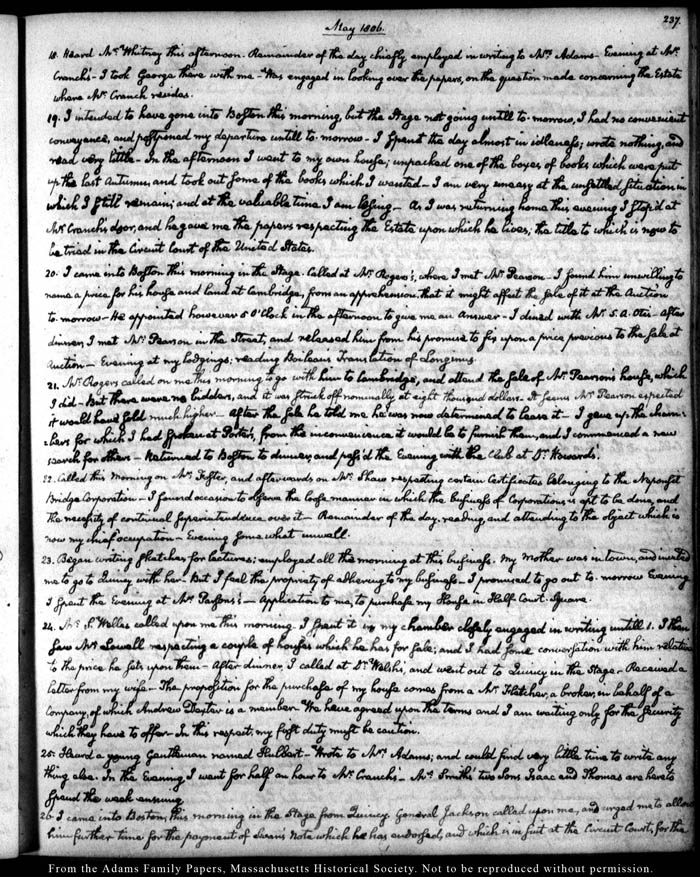 237.
May 1806.
18. Heard Mr. Whitney this afternoon. Remainder of the day chiefly employed in writing to Mrs. Adams - Evening at Mr.
Cranch's - I took George there with me - Was engaged in looking over the papers, on the question made concerning the Estate
where Mr. Cranch resides.
19. I intended to have gone into Boston this morning, but the Stage not going untill to-morrow, I had no convenient
conveyance, and postponed my departure untill to-morrow - I spent the day almost in idleness; wrote nothing, and
read very little - In the afternoon I went to my own house; unpacked one of the boxes of books which were put
up the last Autumn, and took out some of the books which I wanted - I am very uneasy at the unsettled situation in
which I still remain; and at the valuable time I am losing - As I was returning home this evening I stop'd at
Mr. Cranch's door, and he gave me the papers respecting the Estate upon which he lives; the title to which is now to
be tried in the Circuit Court of the United States.
20. I came into Boston this morning in the Stage. Called at Mr. Rogers's, where I met Mr. Pearson - I found him unwilling to
name a price for his house and land at Cambridge, from an apprehension that it might affect the sale of it at the Auction
to-morrow - He appointed however 5 O'Clock in the afternoon to give me an answer - I dined with Mr. S. A. Otis - After
dinner I met Mr. Pearson in the Street, and released him from his promise to fix upon a price previous to the sale at
Auction - Evening at my lodgings; reading Boileau's Translation of Longinus.
21. Mr. Rogers called on me this morning to go with him to Cambridge, and attend the sale of Mr. Pearson's house, which
I did - But there were no bidders, and it was struck off nominally at eight thousand dollars. It seems Mr. Pearson expected
it would have sold much higher - After the sale he told me he was now determined to lease it - I gave up the cham-
-bers for which I had spoken at Porter's, from the inconvenience it would be to furnish them, and I commenced a new
search for others - Returned to Boston to dinner, and pass'd the Evening with the Club at Dr. Howard's.
22. Called this morning on Mr. Foster, and afterwards on Mr. Shaw respecting certain Certificates belonging to the Neponset
Bridge Corporation - I found occasion to observe the loose manner in which the business of Corporations is apt to be done, and
the necessity of continual superintendence over it - Remainder of the day, reading, and attending to the object which is
now my chief occupation - Evening somewhat unwell.
23. Began writing sketches for lectures; employed all the morning at this business. My Mother was in town, and invited
me to go to Quincy with her. But I feel the propriety of adhering to my business. I promised to go out to-morrow Evening
I spent the Evening at Mr. Parsons's - Application to me, to purchase my House in Half-Court Square.
24. Mr. S. Welles called upon me this morning. I spent it in my chamber closely engaged in writing untill 1. I then
saw Mr. Lowell respecting a couple of houses which he has for sale; and I had some conversation with him relative
to the price he sets upon them - After dinner I called at Dr. Welsh's, and went out to Quincy in the Stage. Received a
letter from my wife - The proposition for the purchase of my house comes from a Mr. Fletcher, a broker, on behalf of a
Company, of which Andrew Dexter is a member. We have agreed upon the terms and I am waiting only for the security
which they have to offer - In this respect, my first duty must be caution.
25. Heard a young Gentleman named Hulbert - Wrote to Mrs. Adams; and could find very little time to write any
thing else. In the Evening I went for half an hour to Mr. Cranch's - Mrs. Smith's two Sons Isaac and Thomas are here to
spend the week ensuing
26. I came into Boston, this morning in the Stage from Quincy. General Jackson called upon me, and urged me to allow
him further time for the payment of Swan's Note which he has endorsed, and which is in suit at the Circuit Court, for the
From the Adams Family Papers, Massachusetts Historical Society. Not to be reproduced without permission.